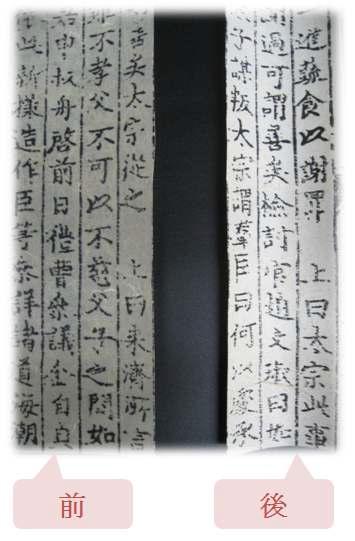 進蔬食以謝罪 上曰太宗此事
過可謂善矣檢討官趙文琡曰如
子謀叛太宗謂羣臣曰何以處承
善矣太宗從之 上曰來濟所言
不孝父不可以不慈父子之間如
申叔舟啓前日禮曹參議金自貞
此新樣造作臣等參詳諸道海朝
前
後